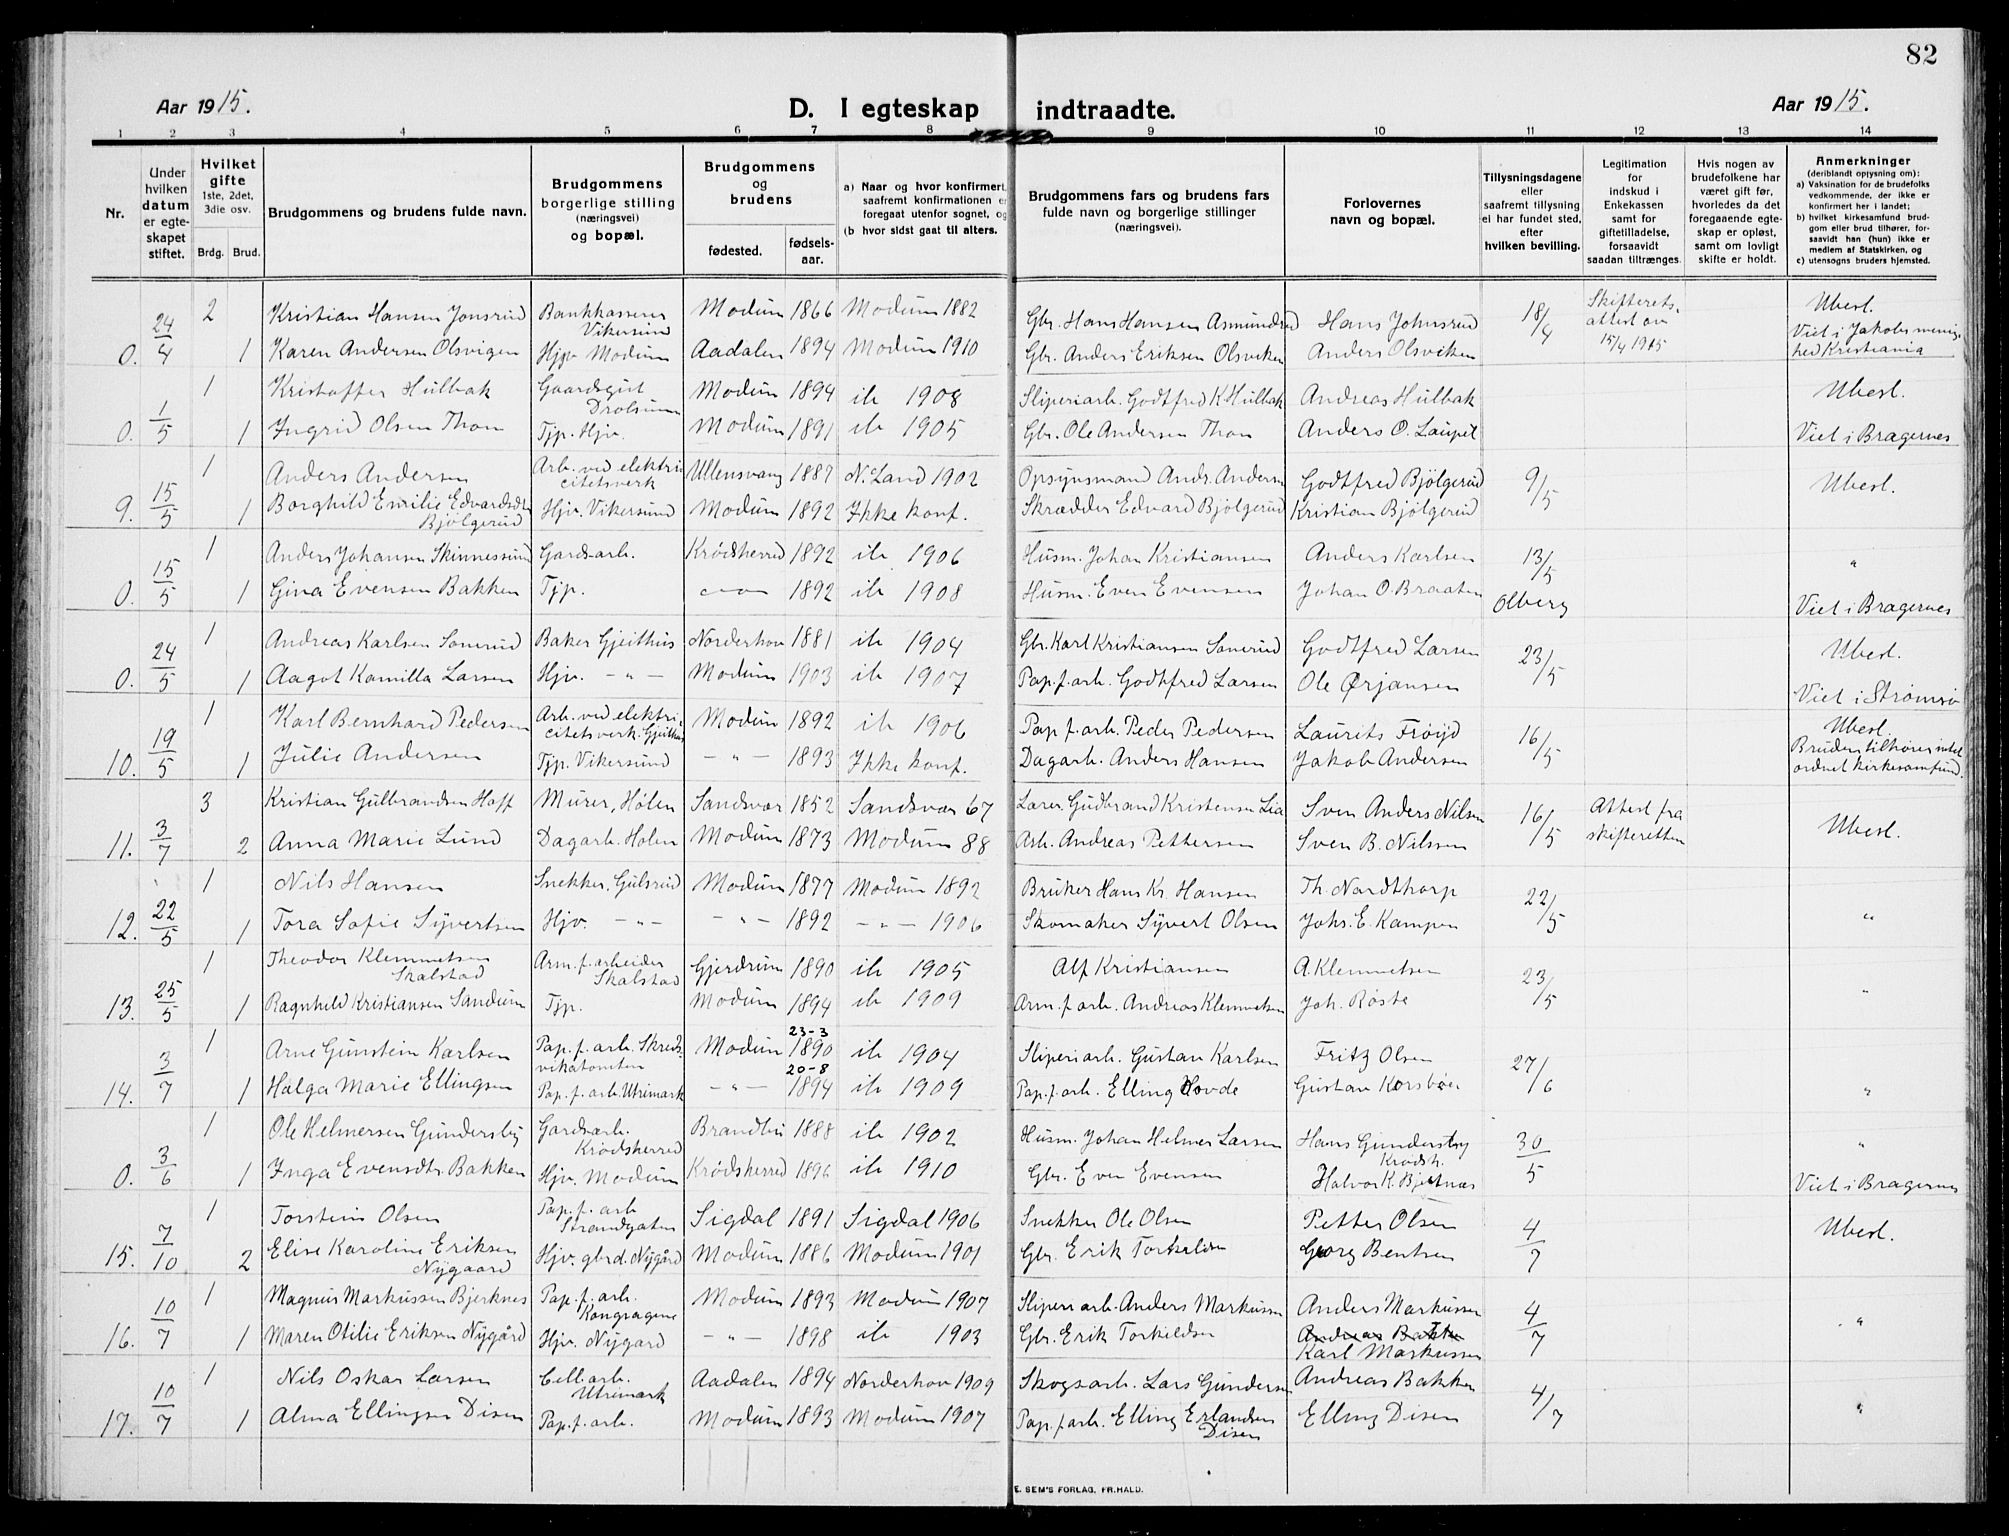 82
Aar 1915.
D. I egteskap indtraadte.
Aar 1915.
1 2 3 4 5 6 7 8 9 10 11 12 13 14
Nr.
Under hvilken datum er egteskapet stiftet.
Hvilket gifte 1ste, 2det, 3die osv.
Brdg. Brud.
Brudgommens og brudens fulde navn.
Brudgommens borgerlige stilling (næringsvei) og bopæl.
Brudgommens og brudens
fødested. fødselsaar.
a) Naar og hvor konfirmert, saafremt konfirmationen er foregaat utenfor sognet, og
(b hvor sidst gaat til alters.
Brudgommens fars og brudens fars fulde navn og borgerlige stillinger (næringsvei).
Forlovernes navn og bopæl.
Tillysningsdagene eller saafremt tillysning ei har fundet sted, efter hvilken bevilling.
Legitimation for indskud i Enkekassen samt for giftetilladelse, forsaavidt saadan tiltrænges.
Hvis nogen av brudefolkene har været gift før, hvorledes da det foregaaende egteskap er opløst, samt om lovligt skifte er holdt.
Anmerkninger (deriblandt oplysning om):
a) Vaksination for de brudefolks vedkommende, der ikke er konfirmert her i landet;
b) hvilket kirkesamfund brudgom eller brud tilhører, forsaavidt han (hun) ikke er medlem af Statskirken, og
c) utensogns bruders hjemsted.
2 Kristian Hansen Jonsrud Bankkasserer Vikersund Modum 1866 Modum 1882 Gbr. Hans Hansen Asmundrud Hans Johnsrud 18/4 Skifterets attest av 15/4 1915 Ubesl.
0. 24/4 1 Karen Andersen Olsvigen Hjv. Modum Aadalen 1894 Modum 1910 Gbr. Anders Eriksen Olsviken Anders Olsviken Viet i Jakobs menighed Kristiania
1 Kristoffer Hulbak Gaardsgut Drolsum Modum 1894 ib 1908 Sliperiarb. Godtfred K. Hulbak Andreas Hulbak Ubesl.
0. 1/5 1 Ingrid Olsen Thon Tjp. Hjv. Modum 1891 ib 1905 Gbr. Ole Andersen Thon Anders O. Viet i Bragernes
1 Anders Andersen Arb. ved elektricitetsverk Ullensvang 1887 N. Land 1902 Opsynsmand Andr. Andersen Godtfred Bjölgerud 9/5 Ubesl.
9. 15/5 1 Borghild Emilie Edvardsdtr Bjölgerud Hjv. Vikersund Modum 1892 Ikke konf. Skrædder Edvard Bjölgerud Kristian Bjölgerud
1 Anders Johansen Skinnessund Gardsarb. Krødsherred 1892 ib 1906 Husm. Johan Kristiansen Anders Karlsen 13/5 "
0. 15/5 1 Gina Evensen Bakken Tjp. —"— 1892 ib 1908 Husm. Even Evensen Johan O. Braaten Olberg Viet i Bragernes
1 Andreas Karlsen Sonerud Baker Gjeithus Norderhov 1881 ib 1904 Gbr. Karl Kristiansen Sonerud Godtfred Larsen 23/5 Ubesl.
0. 24/5 1 Aagot Kamilla Larsen Hjv. —"— Modum 1903 ib 1907 Pap.f.arb. Godtfred Larsen Ole Ørjansen Viet i Strømsø
1 Karl Bernhard Pedersen Arb. ved elektricitetsverk. Gjeithus Modum 1892 ib 1906 Pap.f.arb. Peder Pedersen Laurits Frøyd 16/5 Ubesl.
10. 19/5 1 Julie Andersen Tjp. Vikersund —"— 1893 Ikke konf. Dagarb. Anders Hansen Jakob Andersen Bruden tilhører intet ordnet kirkesamfund.
3 Kristian Gulbrandsen Hoff Murer, Holen Sandsvær 1852 Sandsvær 67 Lærer Gudbrand Kristensen Lia Sven Anders Nilsen 16/5 Attest fra skifteretten Ubesl.
11. 3/7 2 Anna Marie Lund Dagarb. Holen Modum 1873 Modum 88 Arb. Andreas Pettersen Sven B. Nilssen
1 Nils Hansen Snekker, Gulsrud Modum 1877 Modum 1892 Bruker Hans Kr. Hansen Th. Nordthorp 22/5 "
12. 22/5 1 Tora Sofie Syvertsen Hjv. —"— —"— 1892 —"— 1906 Skomaker Syvert Olsen Johs. E. Kampen
1 Theodor Klemmetsen Skalstad Arm.f.arbeider Skalstad Gjerdrum 1890 ib 1905 Alf Kristiansen A. Klemmetsen 23/5 "
13. 25/5 1 Ragnhild Kristiansen Sandum Tjp. Modum 1894 ib 1909 Arm.f.arb. Andreas Klemmetsen Joh. Røste
1 Arne Gunstein Karlsen Pap.f.arb. Skredsvikatomten Modum 23-3 1890 ib 1904 Sliperiarb. Gustav Karlsen Fritz Olsen 27/6 "
14. 3/7 1 Halga Marie Ellingsen Pap.f.arb. Utrimark —"— 20-8 1894 ib 1909 Pap.f.arb. Elling Hovde Gustav Korsbøen
1 Ole Helmersen Gundersby Gardsarb. Krødsherred Brandbu 1888 ib 1902 Husm. Johan Helmer Larsen Hans Gundersby Krødsh. 30/5 "
0. 3/6 1 Inga Evensdtr. Bakken Hjv. Modum Krødsherred 1896 ib 1910 Gbr. Even Evensen Halvor K. Bjertnæs Viet i Bragernes
1 Torstein Olsen Pap.f.arb Strandgaten Sigdal 1891 Sigdal 1906 Snekker Ole Olsen Petter Olsen 4/7 Ubesl.
15. 7/10 2 Elise Karoline Eriksen Nygaard Hjv. gbrd. Nygård Modum 1886 Modum 1901 Gbr. Erik Torkeldsen Georg Bentsen
1 Magnus Markussen Bjerknes Pap.f.arb. Kongragene Modum 1893 Modum 1907 Sliperiarb. Anders Markussen Anders Markussen 4/7 "
16. 10/7 1 Maren Otilie Eriksen Nygård Hjv. Nygard —"— 1898 ib 1903 Gbr. Erik Torkildsen Andreas Bakken Karl Markussen
1 Nils Oskar Larsen Cell.arb. Utrimark Aadalen 1894 Norderhov 1909 Skogsarb. Lars Gundersen Andreas Bakken 4/7 "
17. 10/7 1 Alma Ellingsen Disen Pap.f.arb. Modum 1893 Modum 1907 Pap.f.arb. Elling Erlandsen Disen Elling Disen
E. SEM'S FORLAG, FR.HALD.